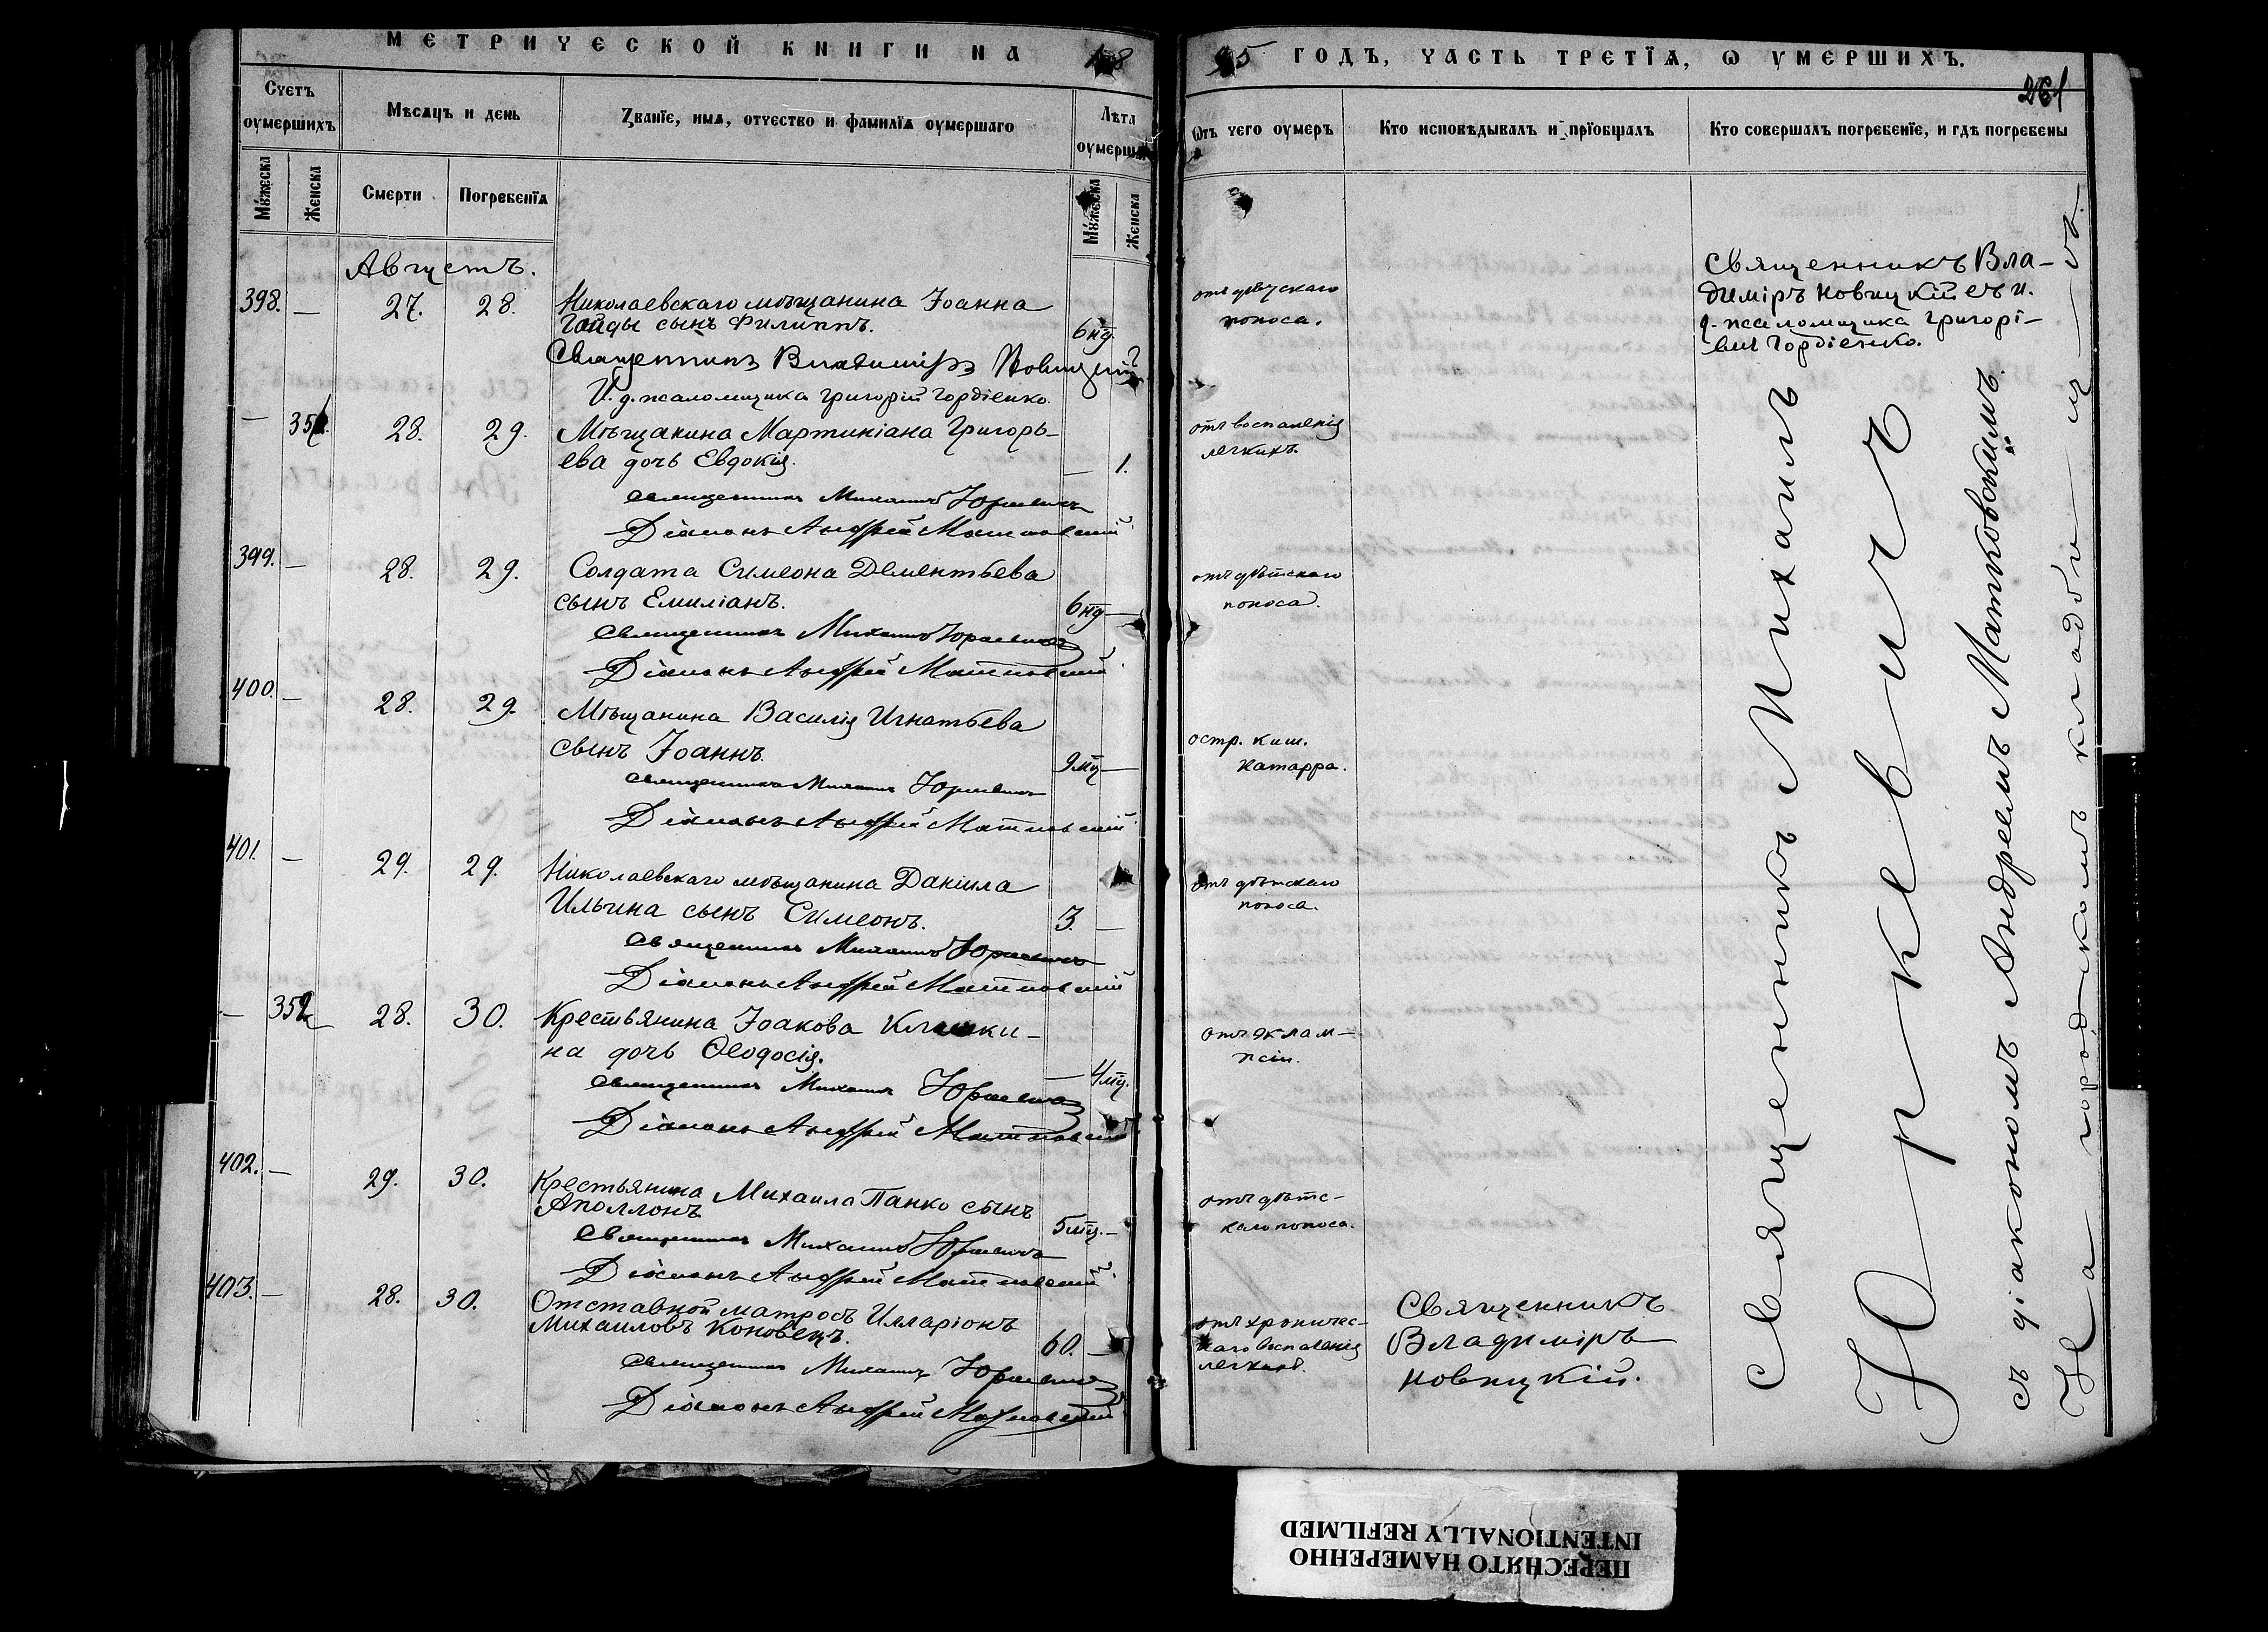 МЕТРИЧЕСКОЙ КНИГИ НА 18
95 ГОДЪ, ЧАСТЬ ТРЕТЇѦ, Ѡ УМЕРШИХЪ.
261
Счетъ оумершихъ
Мѣсѧцъ и день
Званїе, имѧ, отчество и фамилїѧ оумершаго
Лѣта оумерш
Ѿ чего оумеръ
Кто исповѣдывалъ и прїобщалъ
Кто совершалъ погребенїе, и гдѣ погребены
Мꙋжеска
Женска
Смерти
Погребенїѧ
Мꙋжеска
Женска
Августъ.
398. — 27. 28.
Николаевскаго мѣщанина Іоанна
Гайды сынъ Филиппъ.
6 нд.
Священникъ Владиміръ Новицкій
И. д. псаломщика Григорій Гордіенко.
поноса.
Священникъ Вла-
диміръ Новицкій съ и.
д. псаломщика Григорі-
емъ Гордіенко.
— 28. 29.
Мѣщанина Мартиніана Григорь-
ева дочь Евдокія.
— 1.
Священникъ Михаилъ Юркевичъ
Діаконъ Андрей Матковскій
отъ воспаленія
легкихъ.
399. — 28. 29.
Солдата Симеона Дементьева
сынъ Емиліанъ.
6 нд —
Священникъ Михаилъ Юркевичъ
Діаконъ Андрей Матковскій
отъ дѣтскаго
поноса.
400. — 28. 29.
Мѣщанина Василія Игнатьева
сынъ Іоаннъ.
9 мц —
Священникъ Михаилъ Юркевичъ
Діаконъ Андрей Матковскій
остр. киш.
катарра.
401. — 29. 29.
Николаевскаго мѣщанина Даніила
Ильина сынъ Симеонъ.
3. —
Священникъ Михаилъ Юркевичъ
Діаконъ Андрей Матковскій
отъ дѣтскаго
поноса.
— 352 28. 30.
Крестьянина Іоакова
на дочь Ѳеодосія.
— 4 мц.
Священникъ Михаилъ Юркевичъ
Діаконъ Андрей Матковскій
отъ эклам-
псіи.
402. — 29. 30.
Крестьянина Михаила Панко сынъ
Аполлонъ
5 мц. —
Священникъ Михаилъ Юркевичъ
Діаконъ Андрей Матковскій
отъ дѣтс-
каго поноса.
403. — 28. 30.
Отставной матросъ Илларіонъ
Михаиловъ Коновецъ.
60. —
Священникъ Михаилъ Юркевичъ
Діаконъ Андрей Матковскій
отъ хроничес-
каго воспаленія
легкихъ.
Священникъ
Владиміръ
Новицкій.
Священникъ Михаилъ
Юркевичъ
съ діакономъ Андреемъ Матковскимъ.
На городскомъ кладби — щ — ѣ. —
ПЕРЕСНЯТО НАМЕРЕННО
INTENTIONALLY REFILMED